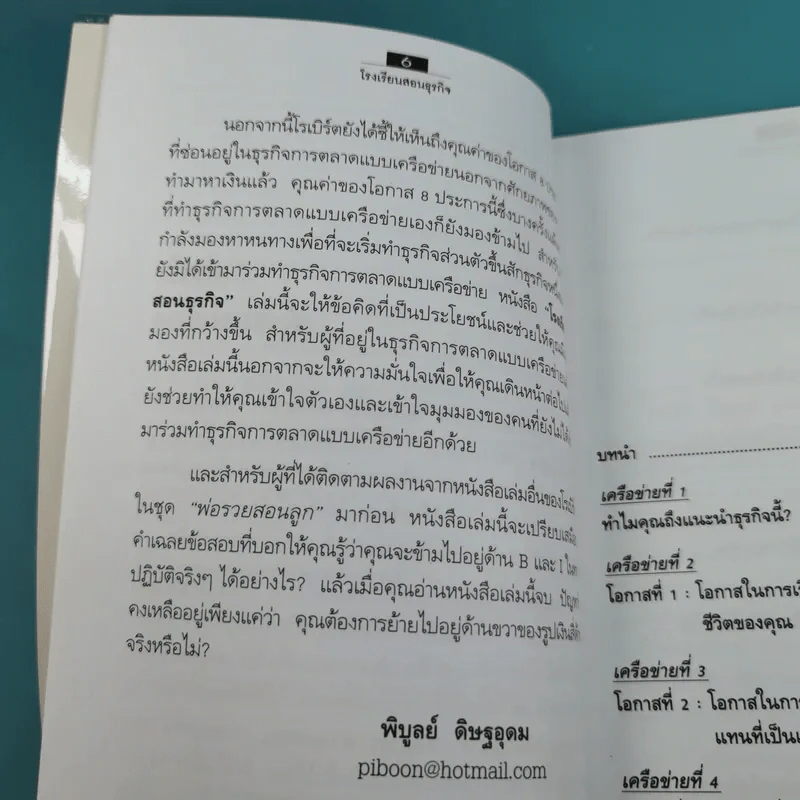 6
โรงเรียนสอนธุรกิจ
นอกจากนี้โรเบิร์ตยังได้ชี้ให้เห็นถึงคุณค่าของโอกาส 8
ที่ซ่อนอยู่ในธุรกิจการตลาดแบบเครือข่ายนอกจากศักยภาพ
ทำมาหาเงินแล้ว คุณค่าของโอกาส 8 ประการนี้ซึ่งบางครั้ง
ที่ทำธุรกิจการตลาดแบบเครือข่ายเองก็ยังมองข้ามไป
กำลังมองหาหนทางเพื่อที่จะเริ่มทำธุรกิจส่วนตัวขึ้นสักธุรกิจ
ยังมิได้เข้ามาร่วมทำธุรกิจการตลาดแบบเครือข่าย หนังสือ
สอนธุรกิจ” เล่มนี้จะให้ข้อคิดที่เป็นประโยชน์และช่วยให้คุณ
มองที่กว้างขึ้น สำหรับผู้ที่อยู่ในธุรกิจการตลาดแบบเครือข่าย
หนังสือเล่มนี้นอกจากจะให้ความมั่นใจเพื่อให้คุณเดินหน้าต่อไป
ยังช่วยทำให้คุณเข้าใจตัวเองและเข้าใจมุมมองของคนที่ยังไม่ได้
มาร่วมทำธุรกิจการตลาดแบบเครือข่ายอีกด้วย
และสำหรับผู้ที่ได้ติดตามผลงานจากหนังสือเล่มอื่นของ
ในชุด “พ่อรวยสอนลูก” มาก่อน หนังสือเล่มนี้จะเปรียบเสมือน
คำเฉลยข้อสอบที่บอกให้คุณรู้ว่าคุณจะข้ามไปอยู่ด้าน B และ I ใน
ปฏิบัติจริงๆ ได้อย่างไร? แล้วเมื่อคุณอ่านหนังสือเล่มนี้จบ ปัญหา
คงเหลืออยู่เพียงแค่ว่า คุณต้องการย้ายไปอยู่ด้านขวาของรูปเงินสี่ด้าน
จริงหรือไม่?
พิบูลย์ ดิษฐอุดม
piboon@hotmail.com
บทนำ
เครือข่ายที่ 1
ทำไมคุณถึงแนะนำธุรกิจนี้?
เครือข่ายที่ 2
โอกาสที่ 1 : โอกาสในการ
ชีวิตของคุณ
เครือข่ายที่ 3
โอกาสที่ 2 : โอกาสในการ
แทนที่เป็น
เครือข่ายที่ 4